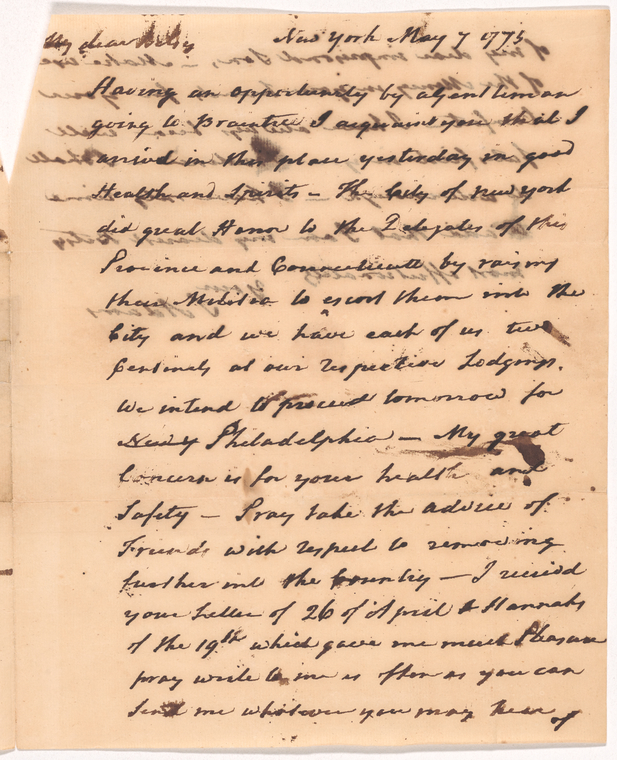 My dear Betsy New York May 7 1775
Having an opportunity by a Gentleman
going to Braintree I acquaint you that I
arrived in this place yesterday in good
Health and Spirits – The City of New York
did great Honor to the Delegates of this
Province and Connecticutt by raising
their Militia to escort them into the
City and we have each of us two
Centinels at our respective Lodgings.
We intend to proceed tomorrow for
Philadelphia – My great
Concern is for your health and
Safety – Pray take the advice of
Friends with respect to removing
further into the Country – I receivd
your Letter of 26 of April & Hannahs
of the 19th which gave me much Pleasure
pray write to me as often as you can
Send me whatever you may hear of